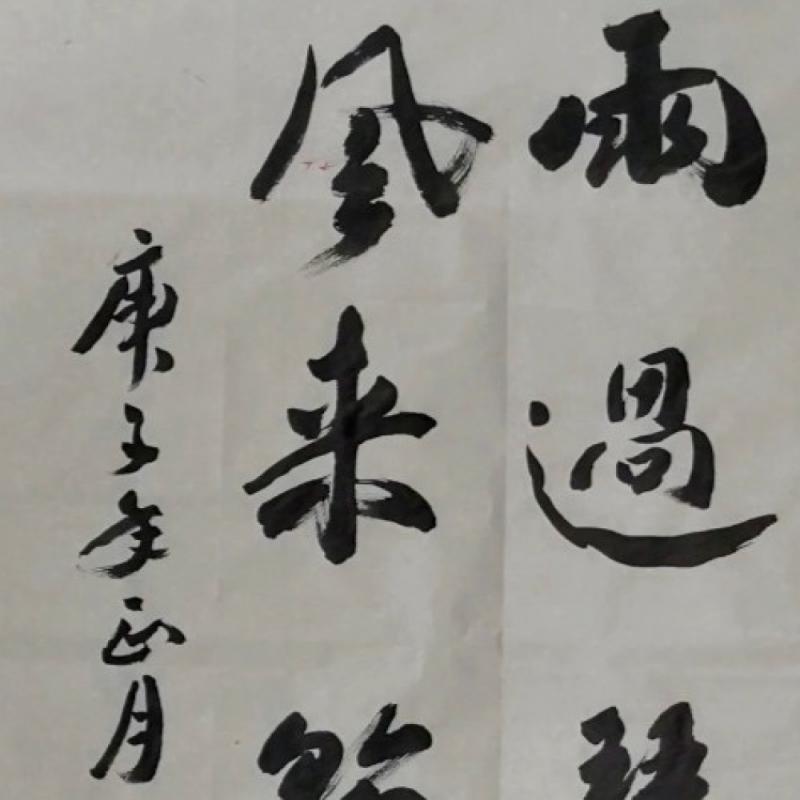 雨過
風来
庚子年正月